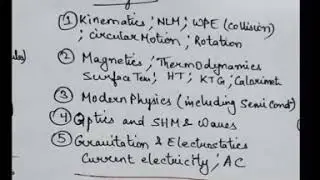 ① Kinematics ; NLM ; WPE (Collision)
; circular Motion ; Rotation
② Magnetics ; Thermodynamics
Surface Ten ; HT ; KTG ; Calorimet
③ Modern Physics (including Semi Cond)
④ Optics and SHM & Waves
⑤ Gravitation & Electrostatics
Current electricity ; AC